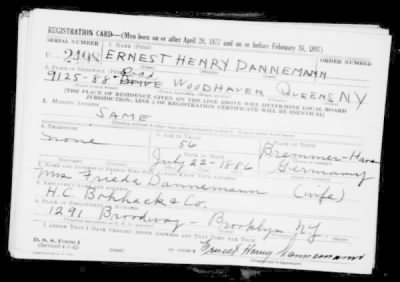 REGISTRATION CARD—(Men born on or after April 28, 1877 and on or before February 16, 1897)
SERIAL NUMBER 1. NAME (Print) ORDER NUMBER
U 2498 ERNEST HENRY DANNEMANN
2. PLACE OF RESIDENCE (Print)
Road
9125-88- DRIVE WOODHAVEN QUEENS NY
[THE PLACE OF RESIDENCE GIVEN ON THE LINE ABOVE WILL DETERMINE LOCAL BOARD
JURISDICTION; LINE 2 OF REGISTRATION CERTIFICATE WILL BE IDENTICAL]
3. MAILING ADDRESS
SAME
4. TELEPHONE 5. AGE IN YEARS 6. PLACE OF BIRTH
none 56 Bremmer-Haven
DATE OF BIRTH
July-22-1886 Germany
Mrs Frieda Dannemann (wife)
H.C. Bohhack & Co.
1291 Broodway - Brooklyn NY.
I AFFIRM THAT I HAVE VERIFIED ABOVE ANSWERS AND THAT THEY ARE TRUE.
D. S. S. Form 1
(Revised 4-1-42)
Ernest Henry Dannemann